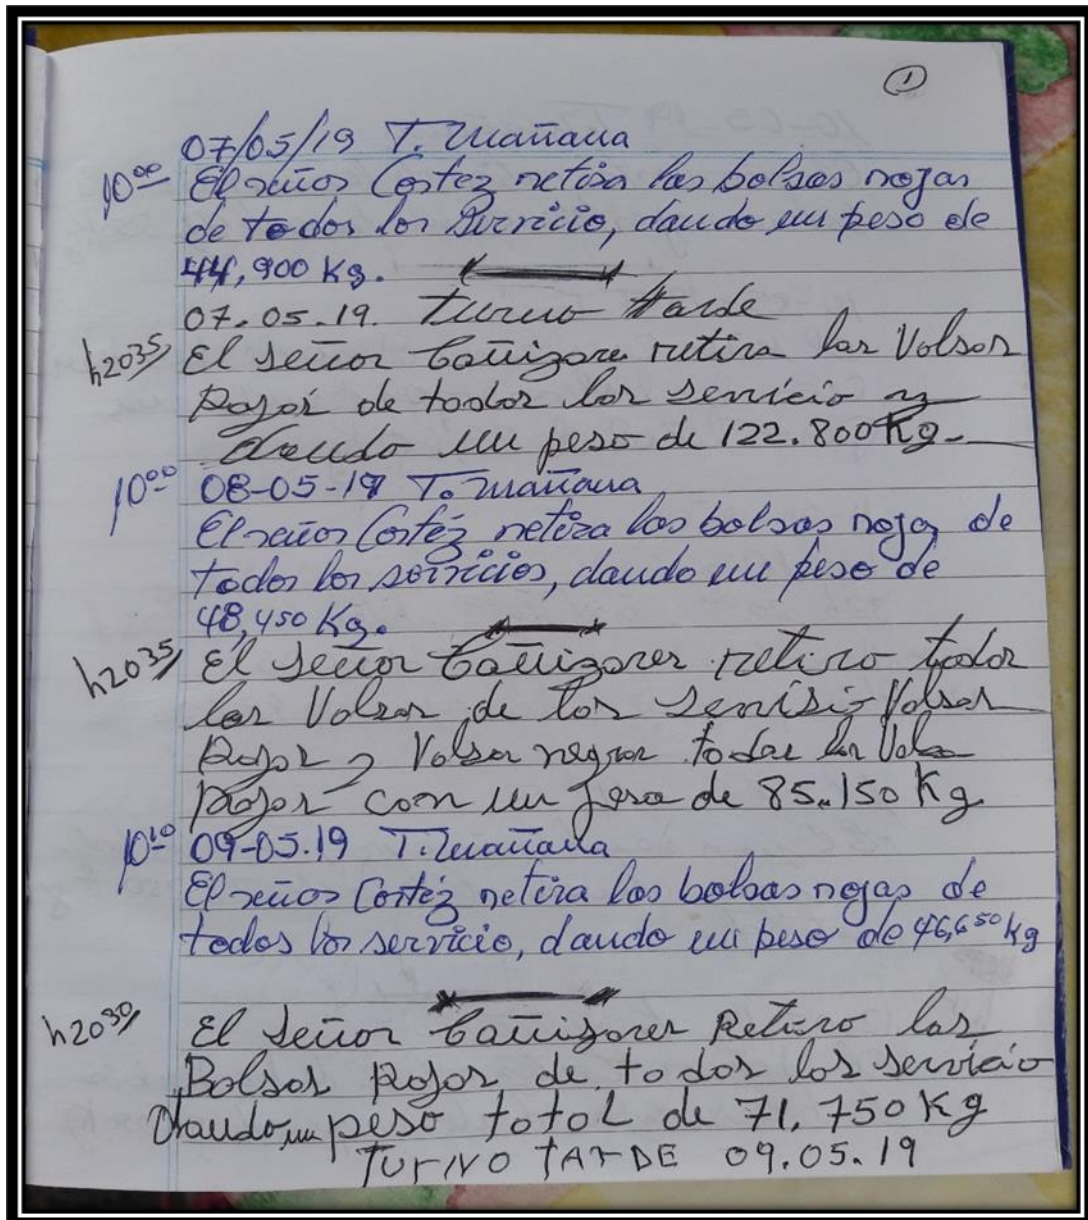 1
07/05/19 T. Mañana
10⁰⁰ El señor Cortez retira las bolsas rojas
de todos los servicio, dando un peso de
44,900 Kg.
07.05.19. Turno tarde
h20³⁵ El señor Cañizare retira las Volsas
Rojas de todos los servicio y
dando un peso de 122.800 Kg-
10⁰⁰ 08-05-19 T. mañana
El señor Cortéz retira las bolsas rojas de
todos los servicios, dando un peso de
48,450 Kg.
h20³⁵ El señor Cañizares retiro todos
las Volsas de los servisio Volsas
Rojos y Volsa negras todas las Volsa
Rojos con un peso de 85.150 Kg
10¹⁰ 09-05.19 T. mañana
El señor Cortéz retira las bolsas rojas de
todos los servicio, dando un peso de 46,650 kg
h20³⁰ El señor Cañizares Retiro las
Bolsas Rojas de todos los servicio
dando un peso total de 71.750 Kg
TURNO TARDE 09.05.19